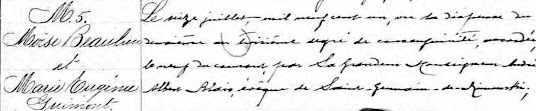 M. 5.
Moïse Beaulieu
et
Marie Eugénie
Guimont
Le seize juillet mil neuf cent un, vu la dispense du
troisième degré de consanguinité, accordée
le neuf du courant par Sa Grandeur Monseigneur André
Albert Blais, évêque de Saint-Germain-de-Rimouski,